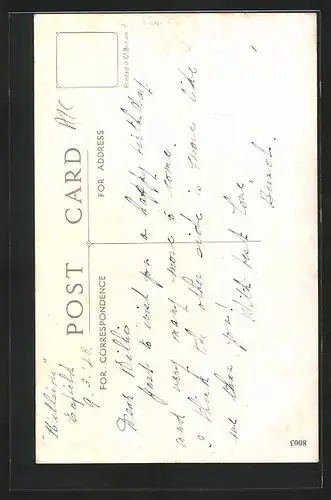 POST CARD
FOR CORRESPONDENCE
FOR ADDRESS
Printed in Gt. Britain
Enfield
9. 3. 28
Dear Billie
Just to wish you a happy birthday
and very many more to come.
I think other side is more like
me than you!
With best love
8003